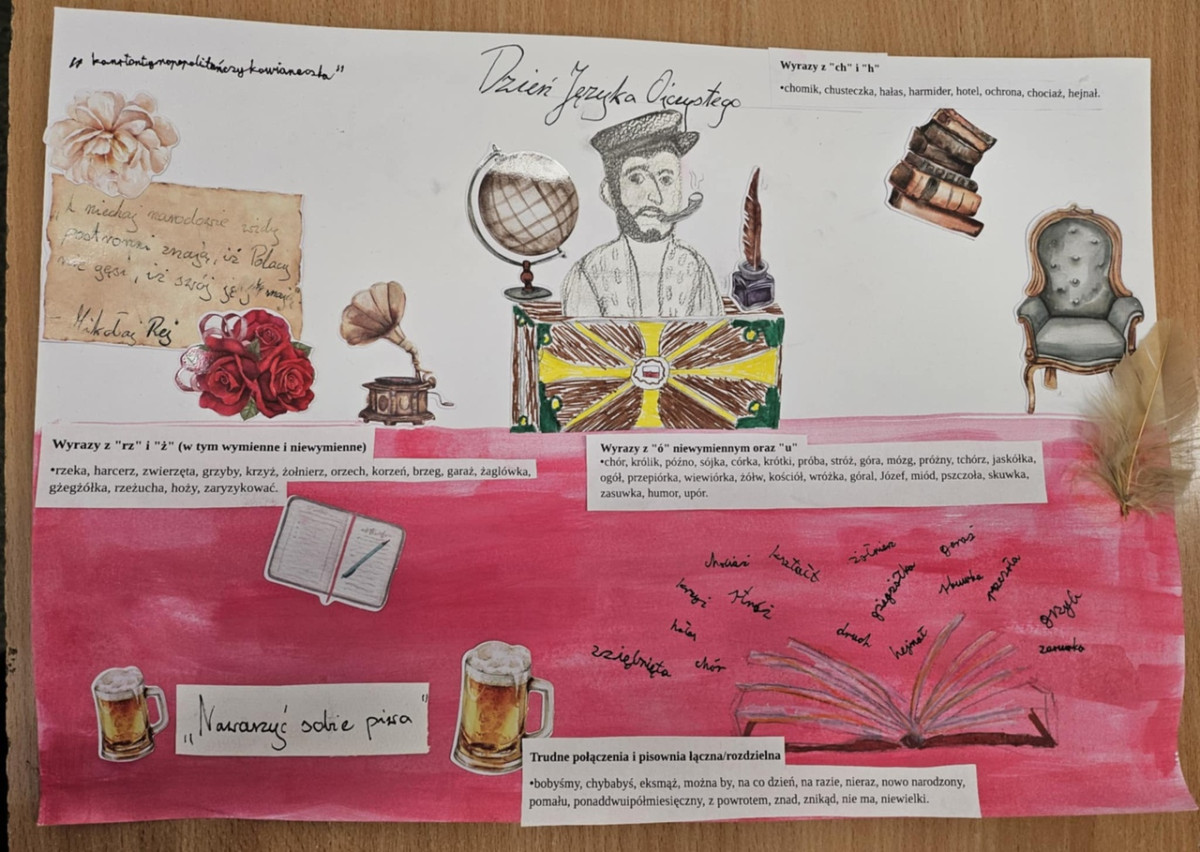 „konstantynopopolitańczykowianeczka”
Dzień Języka Ojczystego
Wyrazy z "ch" i "h"
•chomik, chusteczka, hałas, harmider, hotel, ochrona, chociaż, hejnał.
A niechaj narodowie wżdy
postronni znają, iż Polacy
nie gęsi, iż swój język mają
- Mikołaj Rej
Wyrazy z "rz" i "ż" (w tym wymienne i niewymienne)
•rzeka, harcerz, zwierzęta, grzyby, krzyż, żołnierz, orzech, korzeń, brzeg, garaż, żaglówka,
gżegżółka, rzeżucha, hoży, zaryzykować.
Wyrazy z "ó" niewymiennym oraz "u"
•chór, królik, późno, sójka, córka, krótki, próba, stróż, góra, mózg, próżny, tchórz, jaskółka,
ogół, przepiórka, wiewiórka, żółw, kościół, wróżka, góral, Józef, miód, pszczoła, skuwka,
zasuwka, humor, upór.
chociaż
kształt
żołnierz
garaż
krzyż
stróż
gżegżółka
skuwka
pszczoła
grzyb
hałas
druch
hejnał
zasuwka
zziębnięta
chór
„Nawarzyć sobie piwa”
Trudne połączenia i pisownia łączna/rozdzielna
•bobyśmy, chybabyś, eksmąż, można by, na co dzień, na razie, nieraz, nowo narodzony,
pomału, ponaddwuipółmiesięczny, z powrotem, znad, znikąd, nie ma, niewielki.